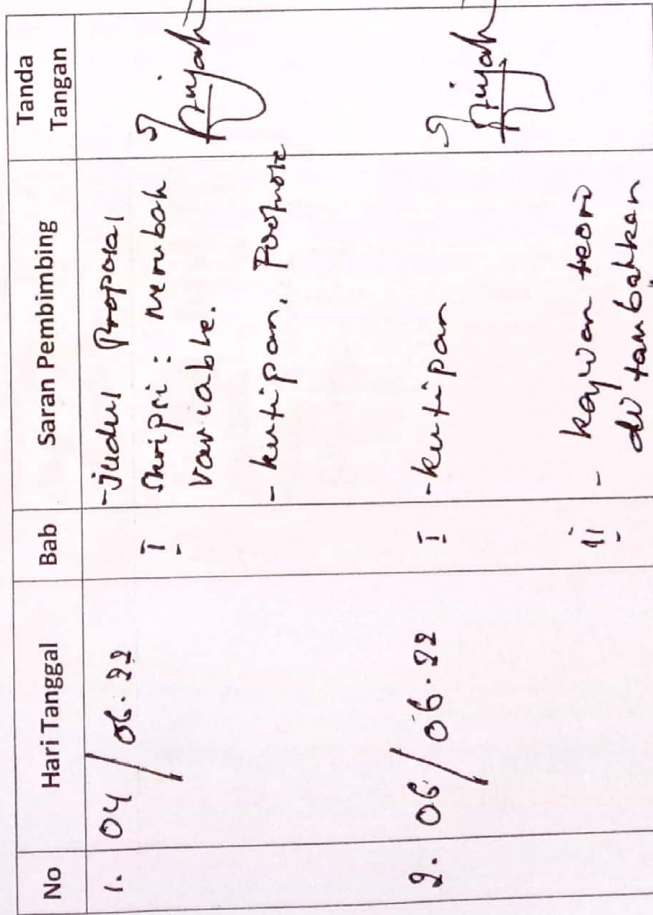 No Hari Tanggal Bab Saran Pembimbing Tanda Tangan
1. 04/06.22 I - Judul Proposal
Skripsi : Merubah
variable.
- kutipan, Footnote
2. 06/06.22 I - kutipan
II - kajian teori
di tambahkan